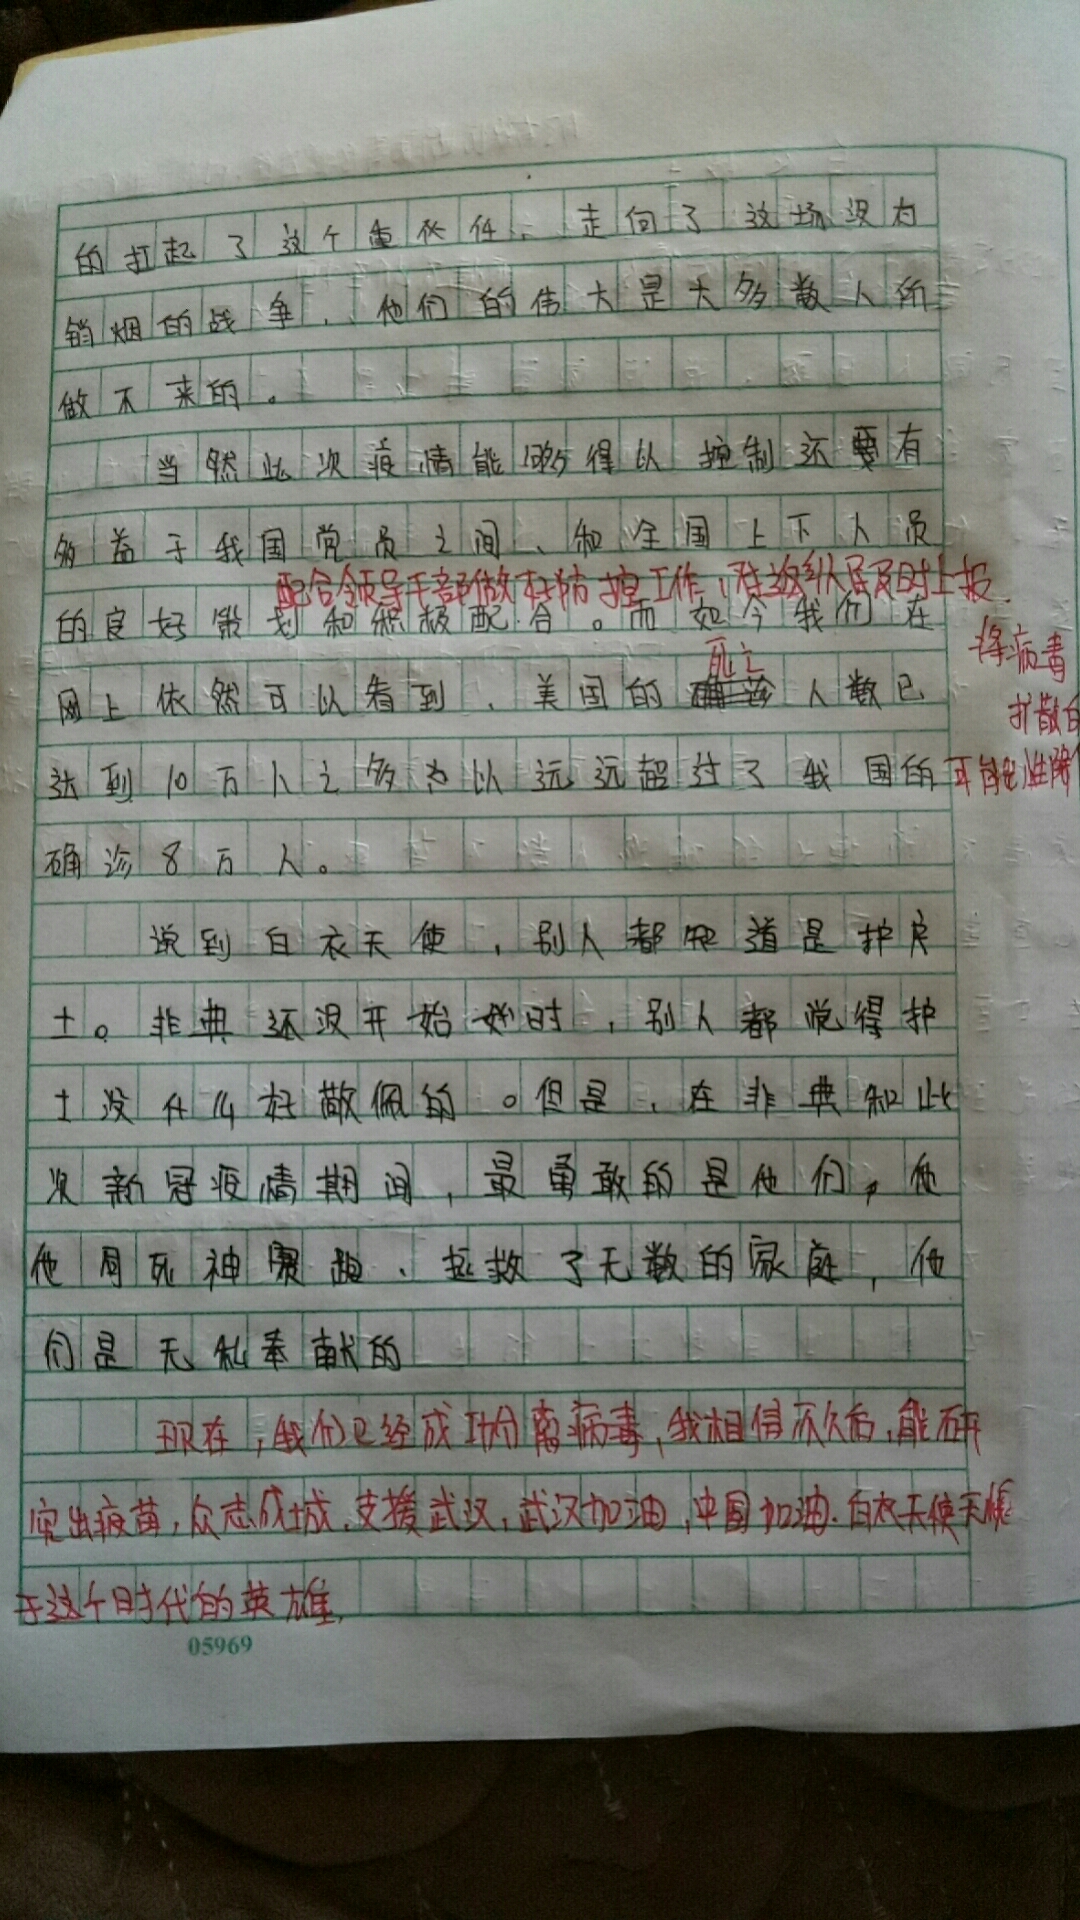 的扛起了这个重伙任、走向了这场没有
销烟的战争、他们的伟大是大多数人所
做不来的。
当然此次疫情能够得以控制还要有
益于我国党员之间、和全国上下人员
配合领导干部做好防控工作,
及时上报
的良好策划和积极配合。而如今我们在
将病毒
死亡
网上依然可以看到、美国的确诊人数已
扩散的
达到10万人之多为以远远超过了我国的
可能性降
确诊8万人。
说到白衣天使,别人都知道是护房
士。非典还没开始时,别人都觉得护
士没什么好敬佩的。但是、在非典和此
次新冠疫情期间,最勇敢的是他们,他
他周死神赛跑、拯救了无数的家庭,他
们是无私奉献的
现在,我们已经成功分离病毒,我相信不久后,能研
究出疫苗,众志成城,支援武汉,武汉加油,中国加油.白衣天使
于这个时代的英雄,
05969